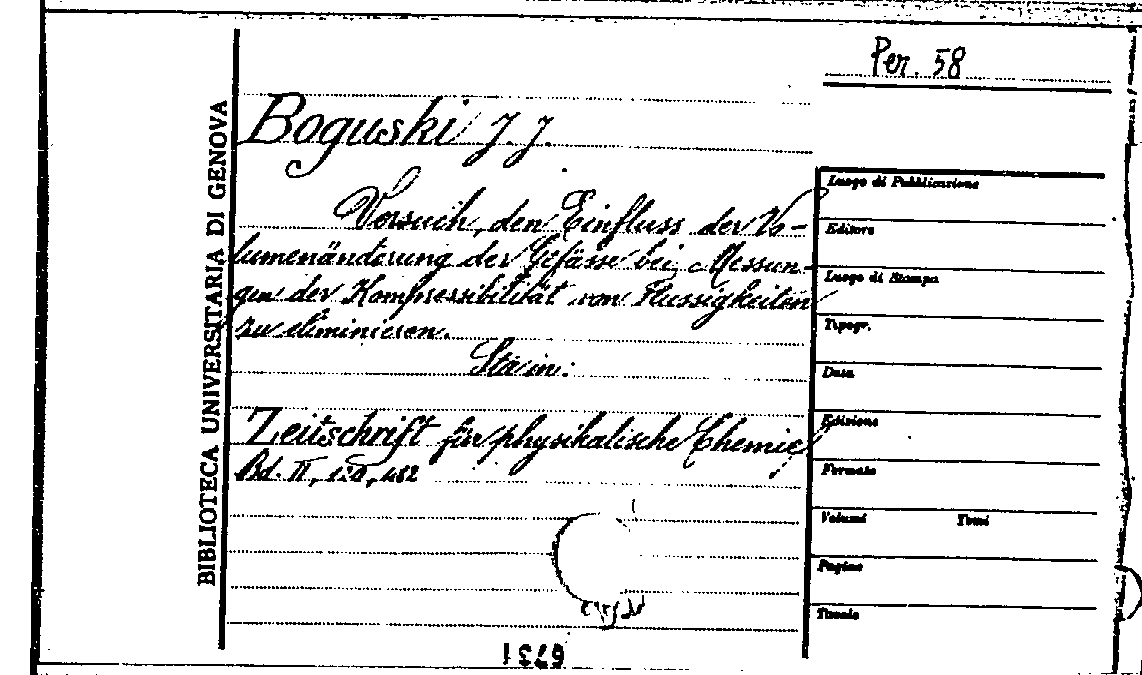 Per. 58
BIBLIOTECA UNIVERSITARIA DI GENOVA
Boguski J. J.
Versuch, den Einfluss der Vo-
lumenänderung der Gefässe bei Messun-
gen der Kompressibilität von Flussigkeiten
zu eliminieren.
Sta in:
Zeitschrift für physikalische Chemie
Bd. II, 120, 482
Luogo di Pubblicazione
Editore
Luogo di Stampa
Tipogr.
Data
Edizione
Formato
Volumi Tomi
Pagine
6731